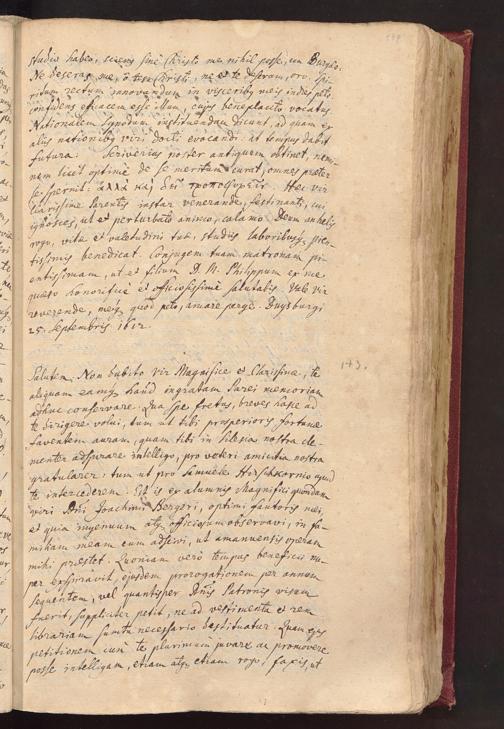 studio habeo, sciens sine Christo me nihil posse, un
Ne deseras me, o Jesu Christi, ne et te deseram, oro. Spi-
ritum rectum innovandum in visceribus meis indes peto,
confidens efficacem esse illum, cujus beneplacito vocatus
Nationalem Synodum instituendam dicunt, ad quam ex
aliis nationibus viri docti evocandi. Ut tempus dabit
futura. Scriverius noster antiquum obtinet, nem-
nem licet optime de se meritum curat, omnes præter
se spernit: ἀλλὰ καὶ Haec vir
clarissime Parentis instar venerande, festinanti, cui
ignosces, ut et perturbato animo, calamo. Deum
rogo, vitæ et valetudini tuæ, studiis laboribusq; pien-
tissimis benedicat. Conjugem tuam matronam pi-
entissimam, ut et filium D. M. Philippum ex me
quæso honorifice et officiosissime salutabis. Vale vir
reverende, meq; quod peto, amare perge. Duysburgi
25. Septembris 1612.
173.
Salutem. Non dubito vir Magnifice et Clarissime, te
aliquam eamq; haud ingratam Parei memoriam
adhuc conservare. Qua spe fretus, breves hasce ad
te dirigere volui, tum ut tibi prosperioris fortunæ
faventem auram, quam tibi in Silesia nostra cle-
menter adspirare intelligo, pro veteri amicitia nostra
gratularer: tum ut pro Samuele Hirschkornio apud
te intercederem. Et is ex alumnis Magnifici quondam
viri Dni. Joachimi Bergeri, optimi fautoris mei,
et quia ingenuum atq; officiosum observavi, in fa-
miliam meam eum adscivi, ut amanuensis operam
mihi præstet. Quoniam vero tempus beneficii nu-
per exspiravit, ejusdem prorogationem per annum
sequentem, vel quantisper Dnis Patronis visum
fuerit, suppliciter petit, ne ad vestimenta et rem
librariam sumtu necessario destituatur. Quam ejus
petitionem cum te plurimum juvare ac promovere
posse intelligam, etiam atq; etiam rogo, faxis, ut